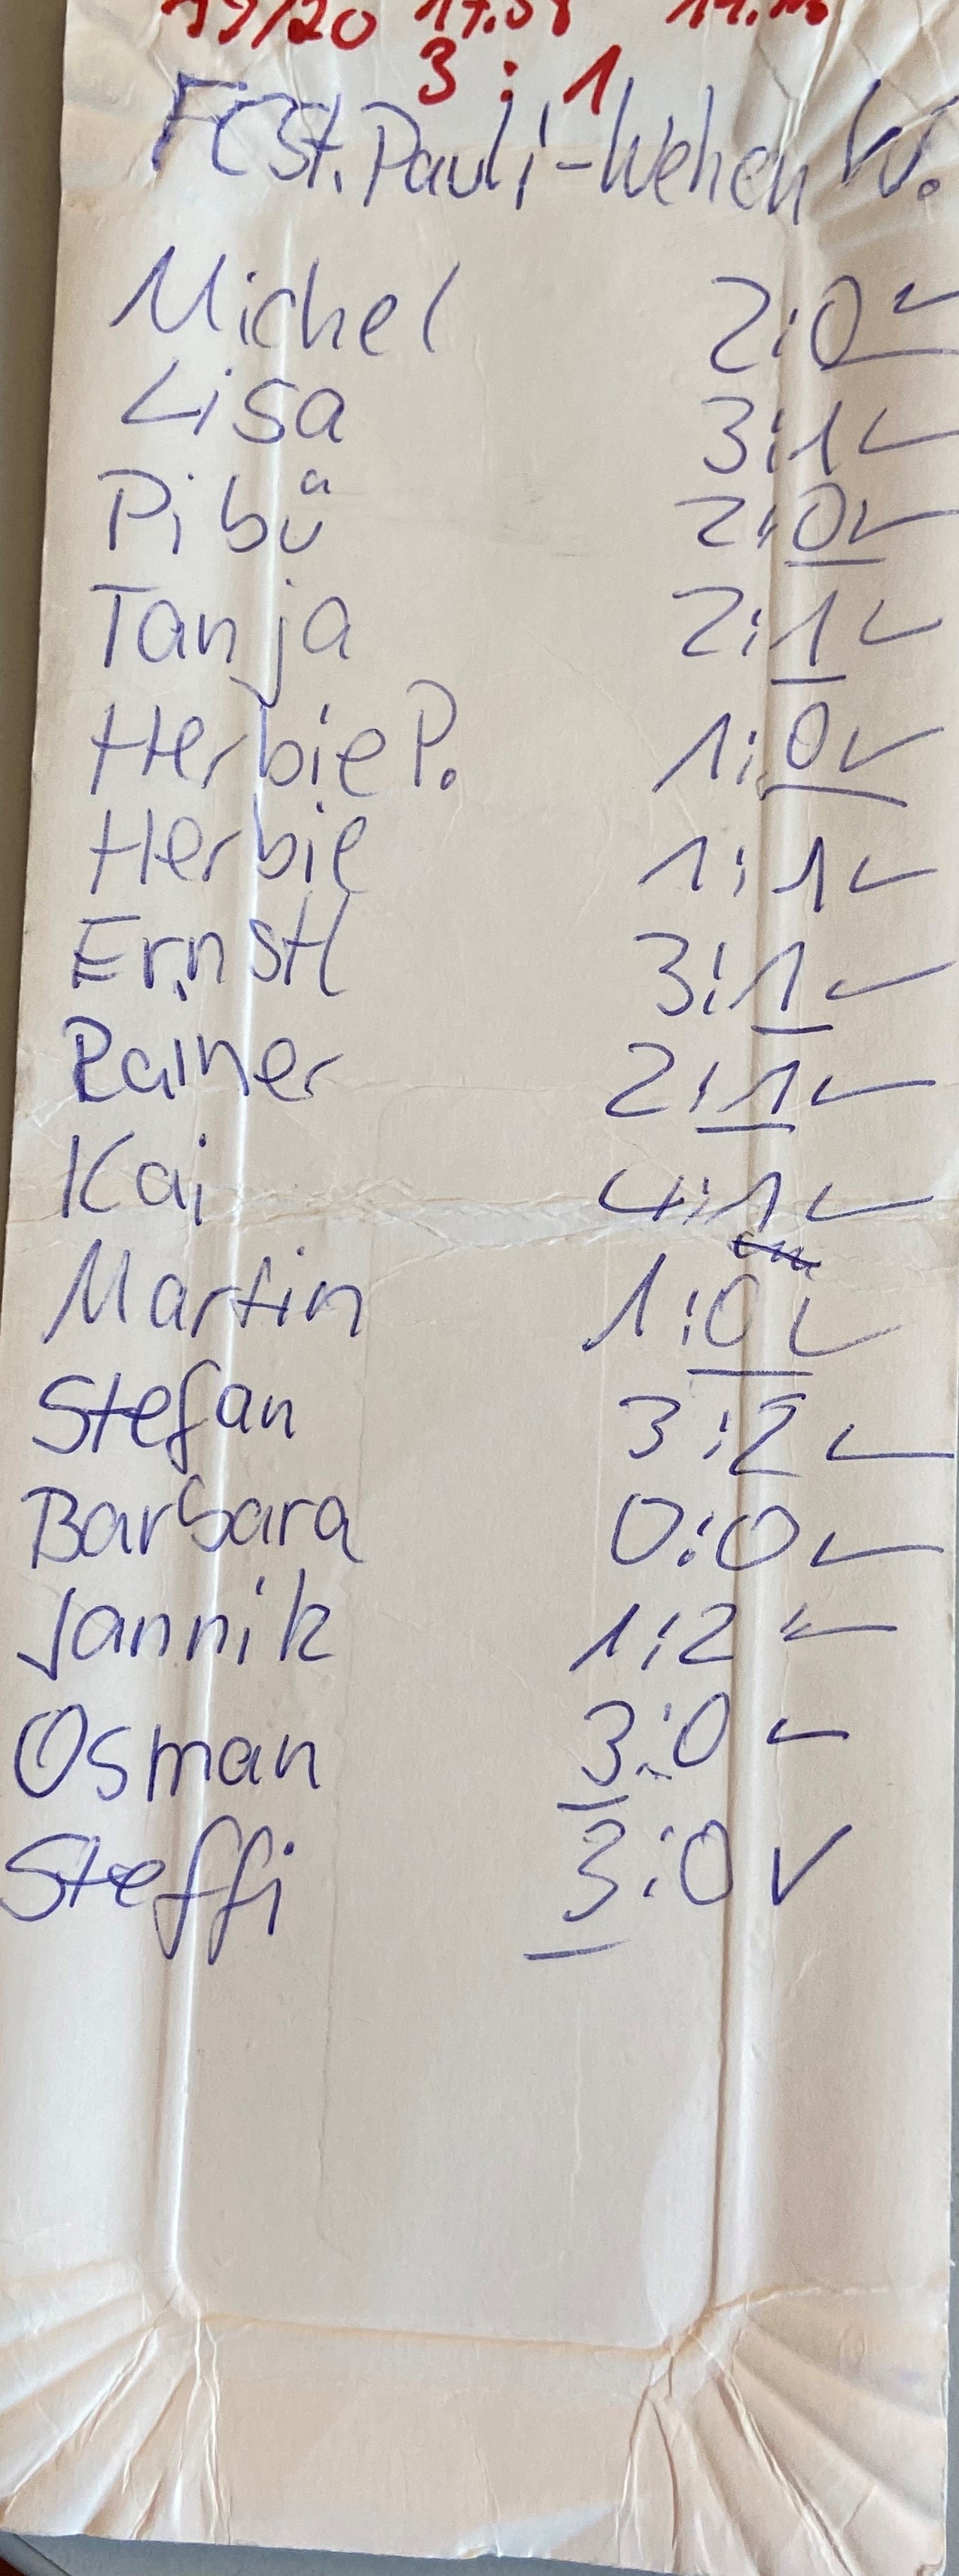 19/20 17.08
3:1
FC St. Pauli-Wehen W.
Michel 2:0 ✓
Lisa 3:1 ✓
Pibü 2:0 ✓
Tanja 2:1 ✓
Herbie P. 1:0 ✓
Herbie 1:1 ✓
Ernstl 3:1 ✓
Rainer 2:1 ✓
Kai 4:1 ✓
Martin 1:0 ✓
Stefan 3:2 ✓
Barbara 0:0 ✓
Jannik 1:2 ✓
Osman 3:0 ✓
Steffi 3:0 ✓